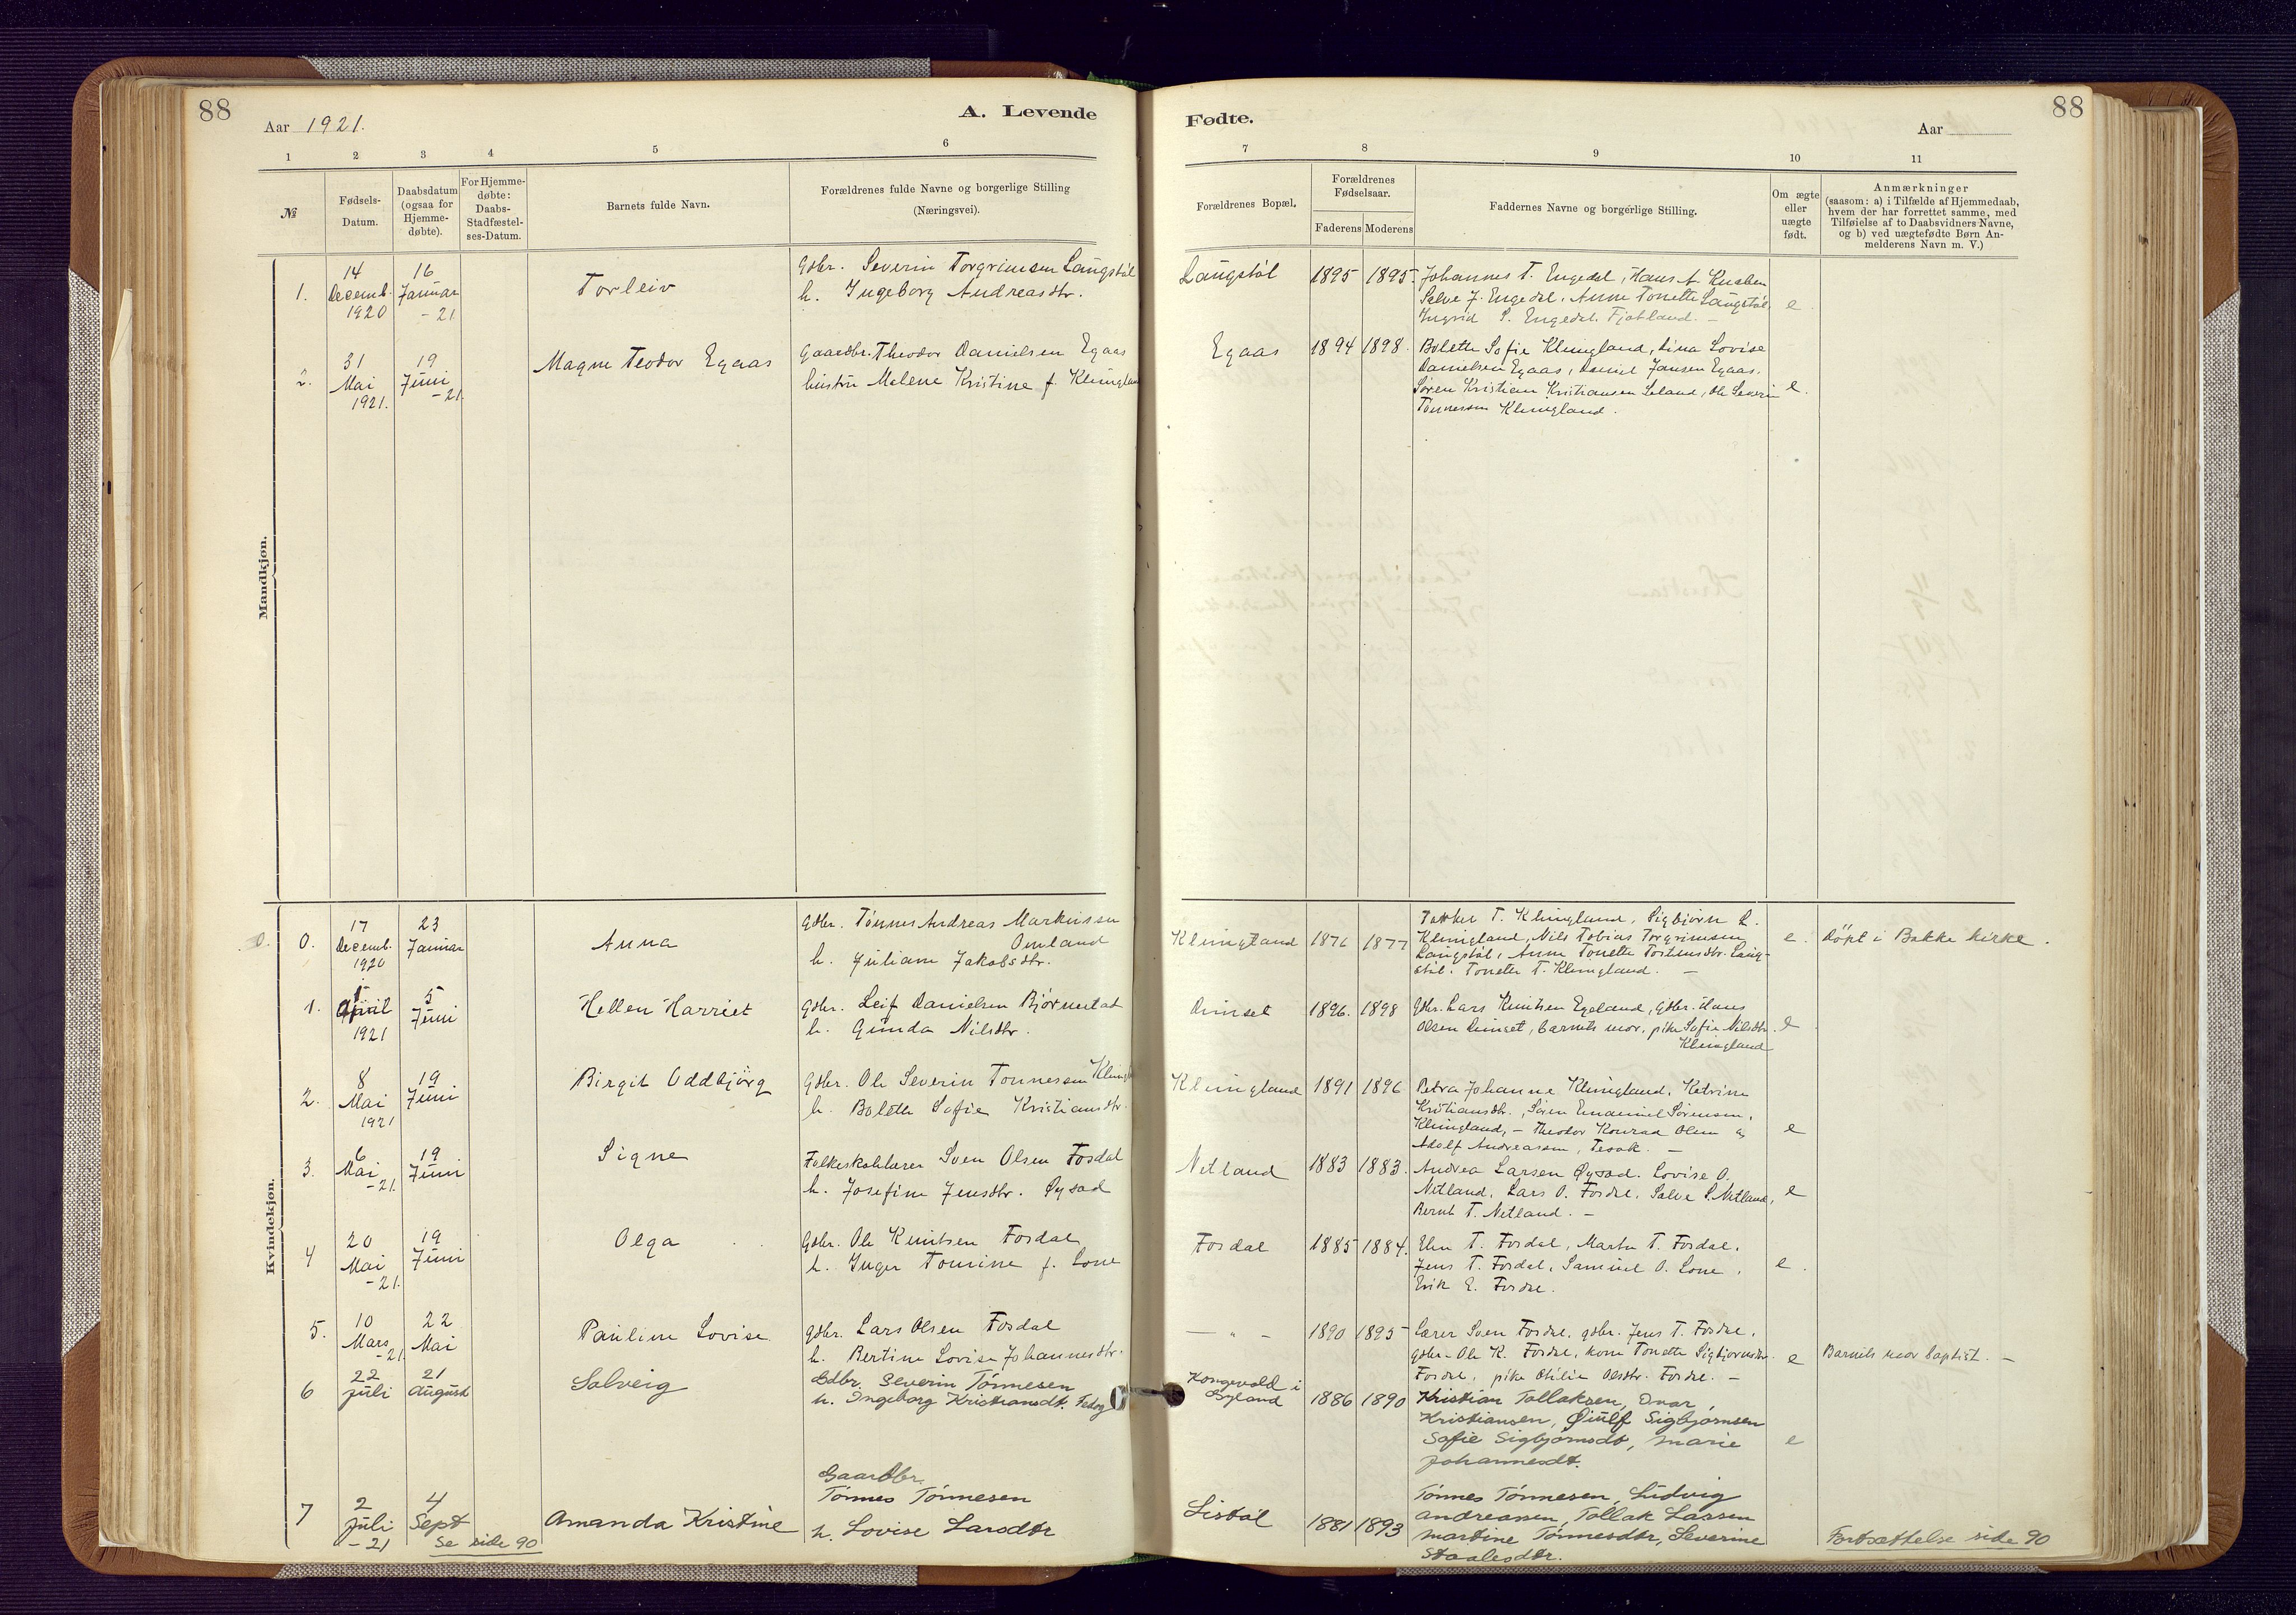 88
Aar 1921.
A. Levende
Fødte.
Aar
88
1 2 3 4 5 6
7 8 9 10 11
№
Fødsels-
Datum.
Daabsdatum
(ogsaa for
Hjemme-
døbte).
For Hjemme-
døbte:
Daabs-
Stadfæstel-
ses-Datum.
Barnets fulde Navn.
Forældrenes fulde Navne og borgerlige Stilling
(Næringsvei).
Forældrenes Bopæl.
Forældrenes
Fødselsaar.
Faderens Moderens
Faddernes Navne og borgerlige Stilling.
Om ægte
eller
uægte
født.
Anmærkninger
(saasom: a) i Tilfælde af Hjemmedaab,
hvem der har forrettet samme, med
Tilføielse af to Daabsvidners Navne,
og b) ved uægtefødte Børn An-
melderens Navn m. V.)
Mandkjøn.
1.
14
Decemb.
1920
16
Januar
- 21
Torleiv
Gdbr. Severin Torgrimsen Langstøl
h. Ingeborg Andreasdtr.
Langstøl
1895
1895
Johannes T. Engedal, Hans A. Knaben
Salve J. Engedal, Anne Tonette Langstøl,
Ingrid S. Engedal. Fjotland. -
e.
2.
31
Mai
1921.
19
Juni
- 21.
Magne Teodor Egaas
Gaardbr. Theodor Danielsen Egaas
hustru Malene Kristine f. Klungland
Egaas
1894
1898.
Bolette Sofie Klungland, Lina Lovise
Danielsen Egaas, Daniel Jansen Egaas.
Søren Kristian Kristiansen Seland, Ole Severin
Tønnessen Klungland.
e.
Kvindekjøn.
0.
17
Decemb.
1920
23
Januar
Anna
Gdbr. Tønnes Andreas Markussen
Omland
h. Juliane Jakobsdtr.
Klungland
1876
1877
T. Klungland, Sigbjørn L.
Klungland, Nils Tobias Torgrimsen
Langstøl, Anne Tonette Torkensdtr. Lang-
støl. Tonette T. Klungland. -
e.
Döpt i Bakke kirke.
1.
April
1921
5
Juni
Hellen Harriet
Gdbr. Leif Danielsen Bjørnestad
h. Gunda Nilsdtr.
1896.
1898
Gdbr. Lars Knutsen Egeland, Gdbr. Hans
Olsen, barnets mor, pike Sofie Nilsdtr.
Klungland
e
2.
8
Mai
1921
19
Juni
Birgit Oddbjörg
Gdbr. Ole Severin Tonnessen Klungl
h. Bolette Sofie Kristiansdtr.
Klungland
1891
1896
Petra Johanne Klungland, Katrine
Kristiansdtr., Søren Emanuel Sørensen,
Klungland, - Theodor Konrad Olsen og
Adolf Andreassen, Tesak. -
e
3.
6
Mai
- 21.
19
Juni
Signe
Folkeskolelærer Sven Olsen Fosdal
h. Josefine Jensdtr. Øysad
Netland
1883
1883.
Andrea Larsen Øysad. Lovise O.
Netland, Lars O. Fosdal, Salve S. Netland,
Bernt T. Netland. -
e
4
20
Mai
- 21.
19
Juni
Olga
Gdbr. Ole Knutsen Fosdal
h. Inger Tomine f. Lone
Fosdal
1885
1884.
Elen T. Fosdal, Marta T. Fosdal.
Jens T. Fosdal, Samuel O. Lone,
Erik E. Fosdal.
e.
5.
10
Mars
- 21.
22
Mai
Pauline Lovise
Gdbr. Lars Olsen Fosdal
h. Bertine Lovise Johannesdtr.
— „ -
1890
1895
Lærer Sven Fosdal, gdbr. Jens T. Fosdal,
gdbr. Ole K. Fosdal, kone Tonette Sigbjornsdtr.
Fosdal, pike Otilie Olsdtr. Fosdal. -
e
Barnets mor baptist. -
6
22
juli
21
august
Solveig
Gdbr. Severin Tønnesen
h. Ingeborg Kristiansdt.
Kongevold i
Gyland
1886
1890
Kristian Tollaksen, Ivar
Kristiansen, Øiulf Sigbjørnsen
Sofie Sigbjørnsdt, Marie
Johannesdt.
e
7
2
juli
- 21
4
Sept
Se side 90
Amanda Kristine
Gaardbr.
Tønnes Tønnesen
h. Lovise Larsdtr
Listøl
1881
1893
Tønnes Tønnesen, Ludvig
Andreasen, Tollak Larsen
Martine Tønnesdtr, Severine
Staalesdtr.
Fortsættelse side 90